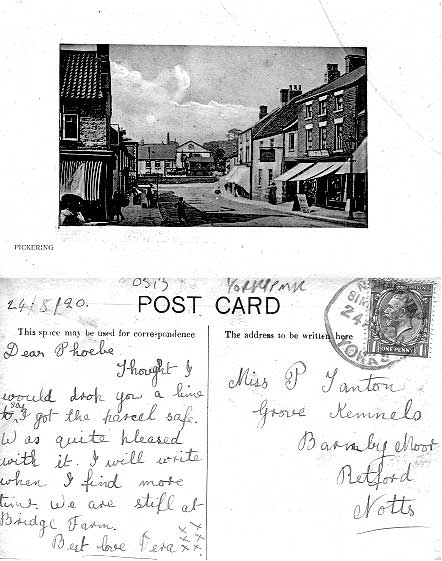 PICKERING
24/8/20.
POST CARD
This space may be used for correspondence
The address to be written here
Dear Phoebe
Thought I
would drop you a line
to say I got the parcel safe.
Was quite pleased
with it. I will write
when I find more
time. We are still at
Bridge Farm.
Best love Vera xx
xxx
Miss P Tanton
Grove Kennels
Barnby Moor
Retford
Notts
ONE PENNY
YORKS